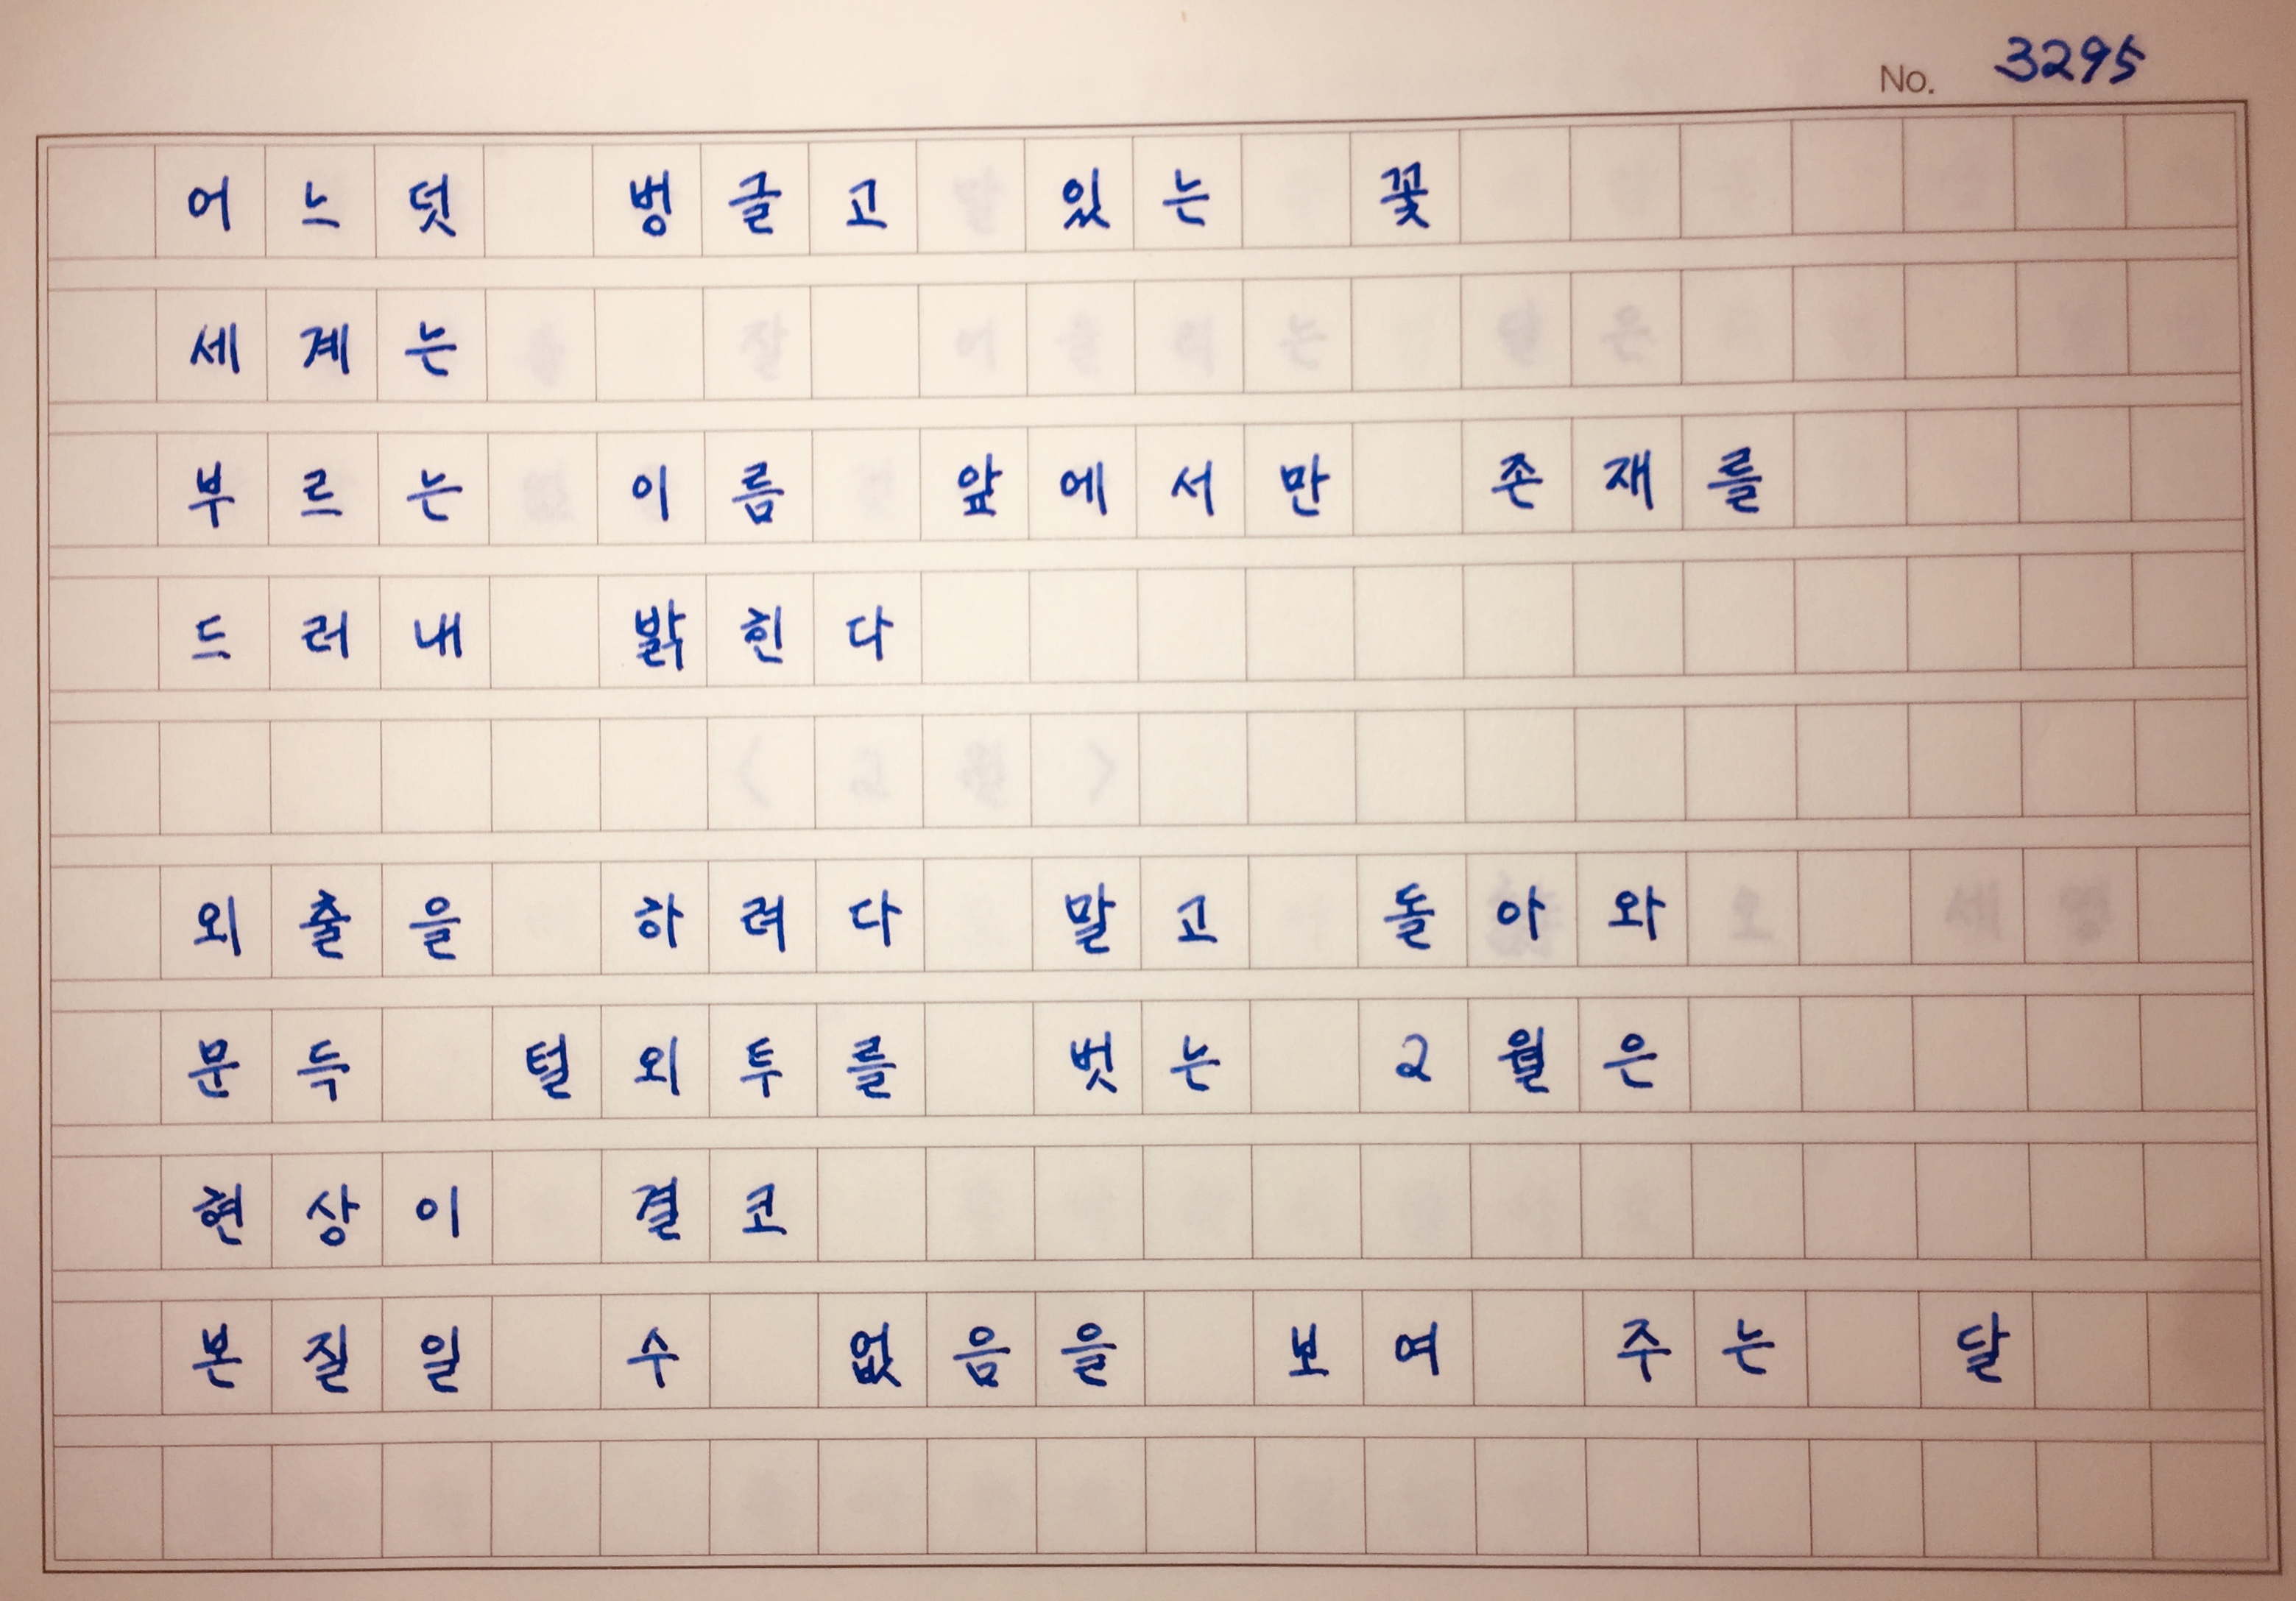 No. 3295
어느덧 벙글고 있는 꽃
세계는
부르는 이름 앞에서만 존재를
드러내 밝힌다
외출을 하려다 말고 돌아와
문득 털외투를 벗는 2월은
현상이 결코
본질일 수 없음을 보여 주는 달